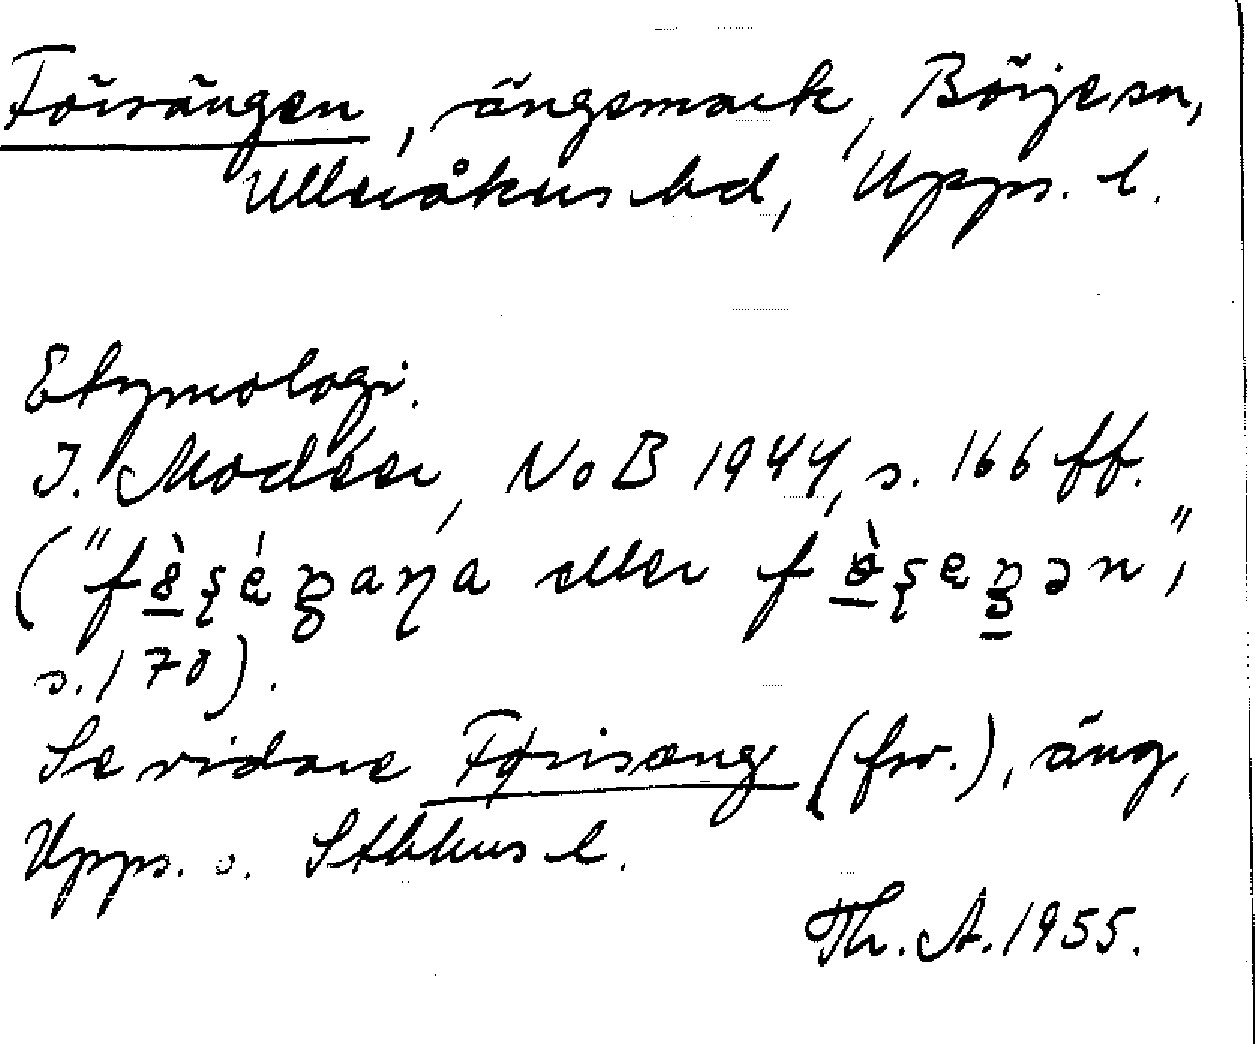 Försängen, ängsmark, Börje sn,
Ulleråkers hd, Upps. l.
Etymologi.
I. Modéer, NoB 1944, s. 166 ff.
eller
s. 170).
Se vidare Förisæng (fsv.), äng,
Upps. o. Sthlms l.
Th. A. 1955.